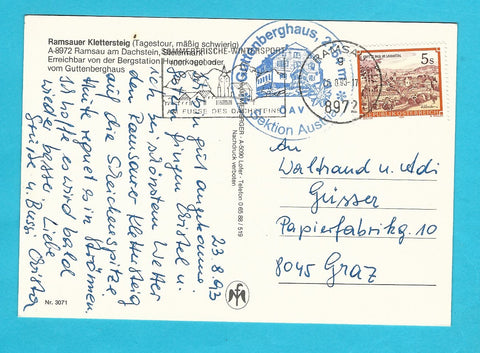 Ramsauer Klettersteig (Tagestour, mäßig schwierig)
A-8972 Ramsau am Dachstein, Steiermark
Erreichbar von der Bergstation Hunerkogel oder
vom Guttenberghaus
SOMMERFRISCHE-WINTERSPORT
AM FUSSE DES DACHSTEINS
Guttenberghaus, 2
ÖAV
Sektion Austria
RAMSAU
8972
5s
REPUBLIK ÖSTERREICH
A-5090 Lofer - Telefon 0 65 88 / 519
Nachdruck verboten
23.8.93
gut angekommen
gingen Christl u.
ich bei schönstem Wetter
den Ramsauer Klettersteig
auf die Scheichenspitze.
Heute regnet es in Strömen.
Ich hoffe es wird bald
wieder besser. Liebe
Grüße u. Bussi Christa
An
Waltraud u. Adi
Güsser
Papierfabrikg. 10
8045 Graz
Nr. 3071